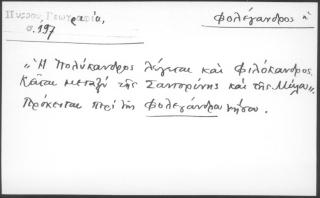 Φολέγανδρος ἡ
Πίνερου, Γεωγραφία,
σ. 197
"Ἡ Πολύκανδρος λέγεται καὶ Φιλόκανδρος.
Κεῖται μεταξὺ τῆς Σαντορίνης καὶ τῆς Μήλου".
Πρόκειται περὶ τῆς Φολεγάνδρου νήσου.